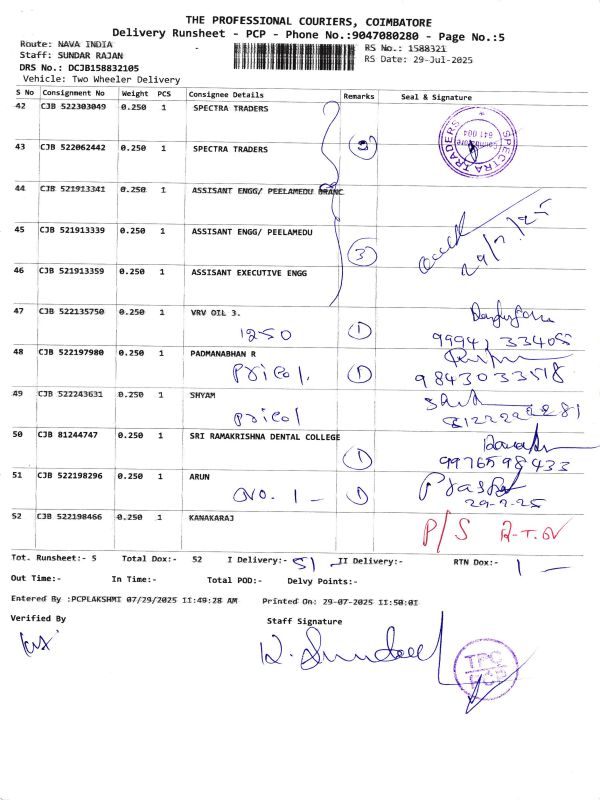 THE PROFESSIONAL COURIERS, COIMBATORE
Delivery Runsheet - PCP - Phone No.:9047080280 - Page No.:5
Route: NAVA INDIA
RS No.: 1588321
Staff: SUNDAR RAJAN
RS Date: 29-Jul-2025
DRS No.: DCJB158832105
Vehicle: Two Wheeler Delivery
S No Consignment No Weight PCS Consignee Details Remarks Seal & Signature
42 CJB 522303049 0.250 1 SPECTRA TRADERS
SPECTRA TRADERS
Coimbatore
641 004
43 CJB 522062442 0.250 1 SPECTRA TRADERS
44 CJB 521913341 0.250 1 ASSISANT ENGG/ PEELAMEDU BRANC
45 CJB 521913339 0.250 1 ASSISANT ENGG/ PEELAMEDU
3
29/7/25
46 CJB 521913359 0.250 1 ASSISANT EXECUTIVE ENGG
47 CJB 522135750 0.250 1 VRV OIL 3.
1250 1
48 CJB 522197980 0.250 1 PADMANABHAN R
Pricol. 1 9843033518
49 CJB 522243631 0.250 1 SHYAM
pricol
50 CJB 81244747 0.250 1 SRI RAMAKRISHNA DENTAL COLLEGE
1 9976598433
51 CJB 522198296 0.250 1 ARUN
1
52 CJB 522198466 0.250 1 KANAKARAJ
P/S
Tot. Runsheet:- 5 Total Dox:- 52 I Delivery:- 51 II Delivery:- RTN Dox:- 1 —
Out Time:- In Time:- Total POD:- Delvy Points:-
Entered By :PCPLAKSHMI 07/29/2025 11:49:28 AM Printed On: 29-07-2025 11:50:01
Verified By Staff Signature
TPC
PCP